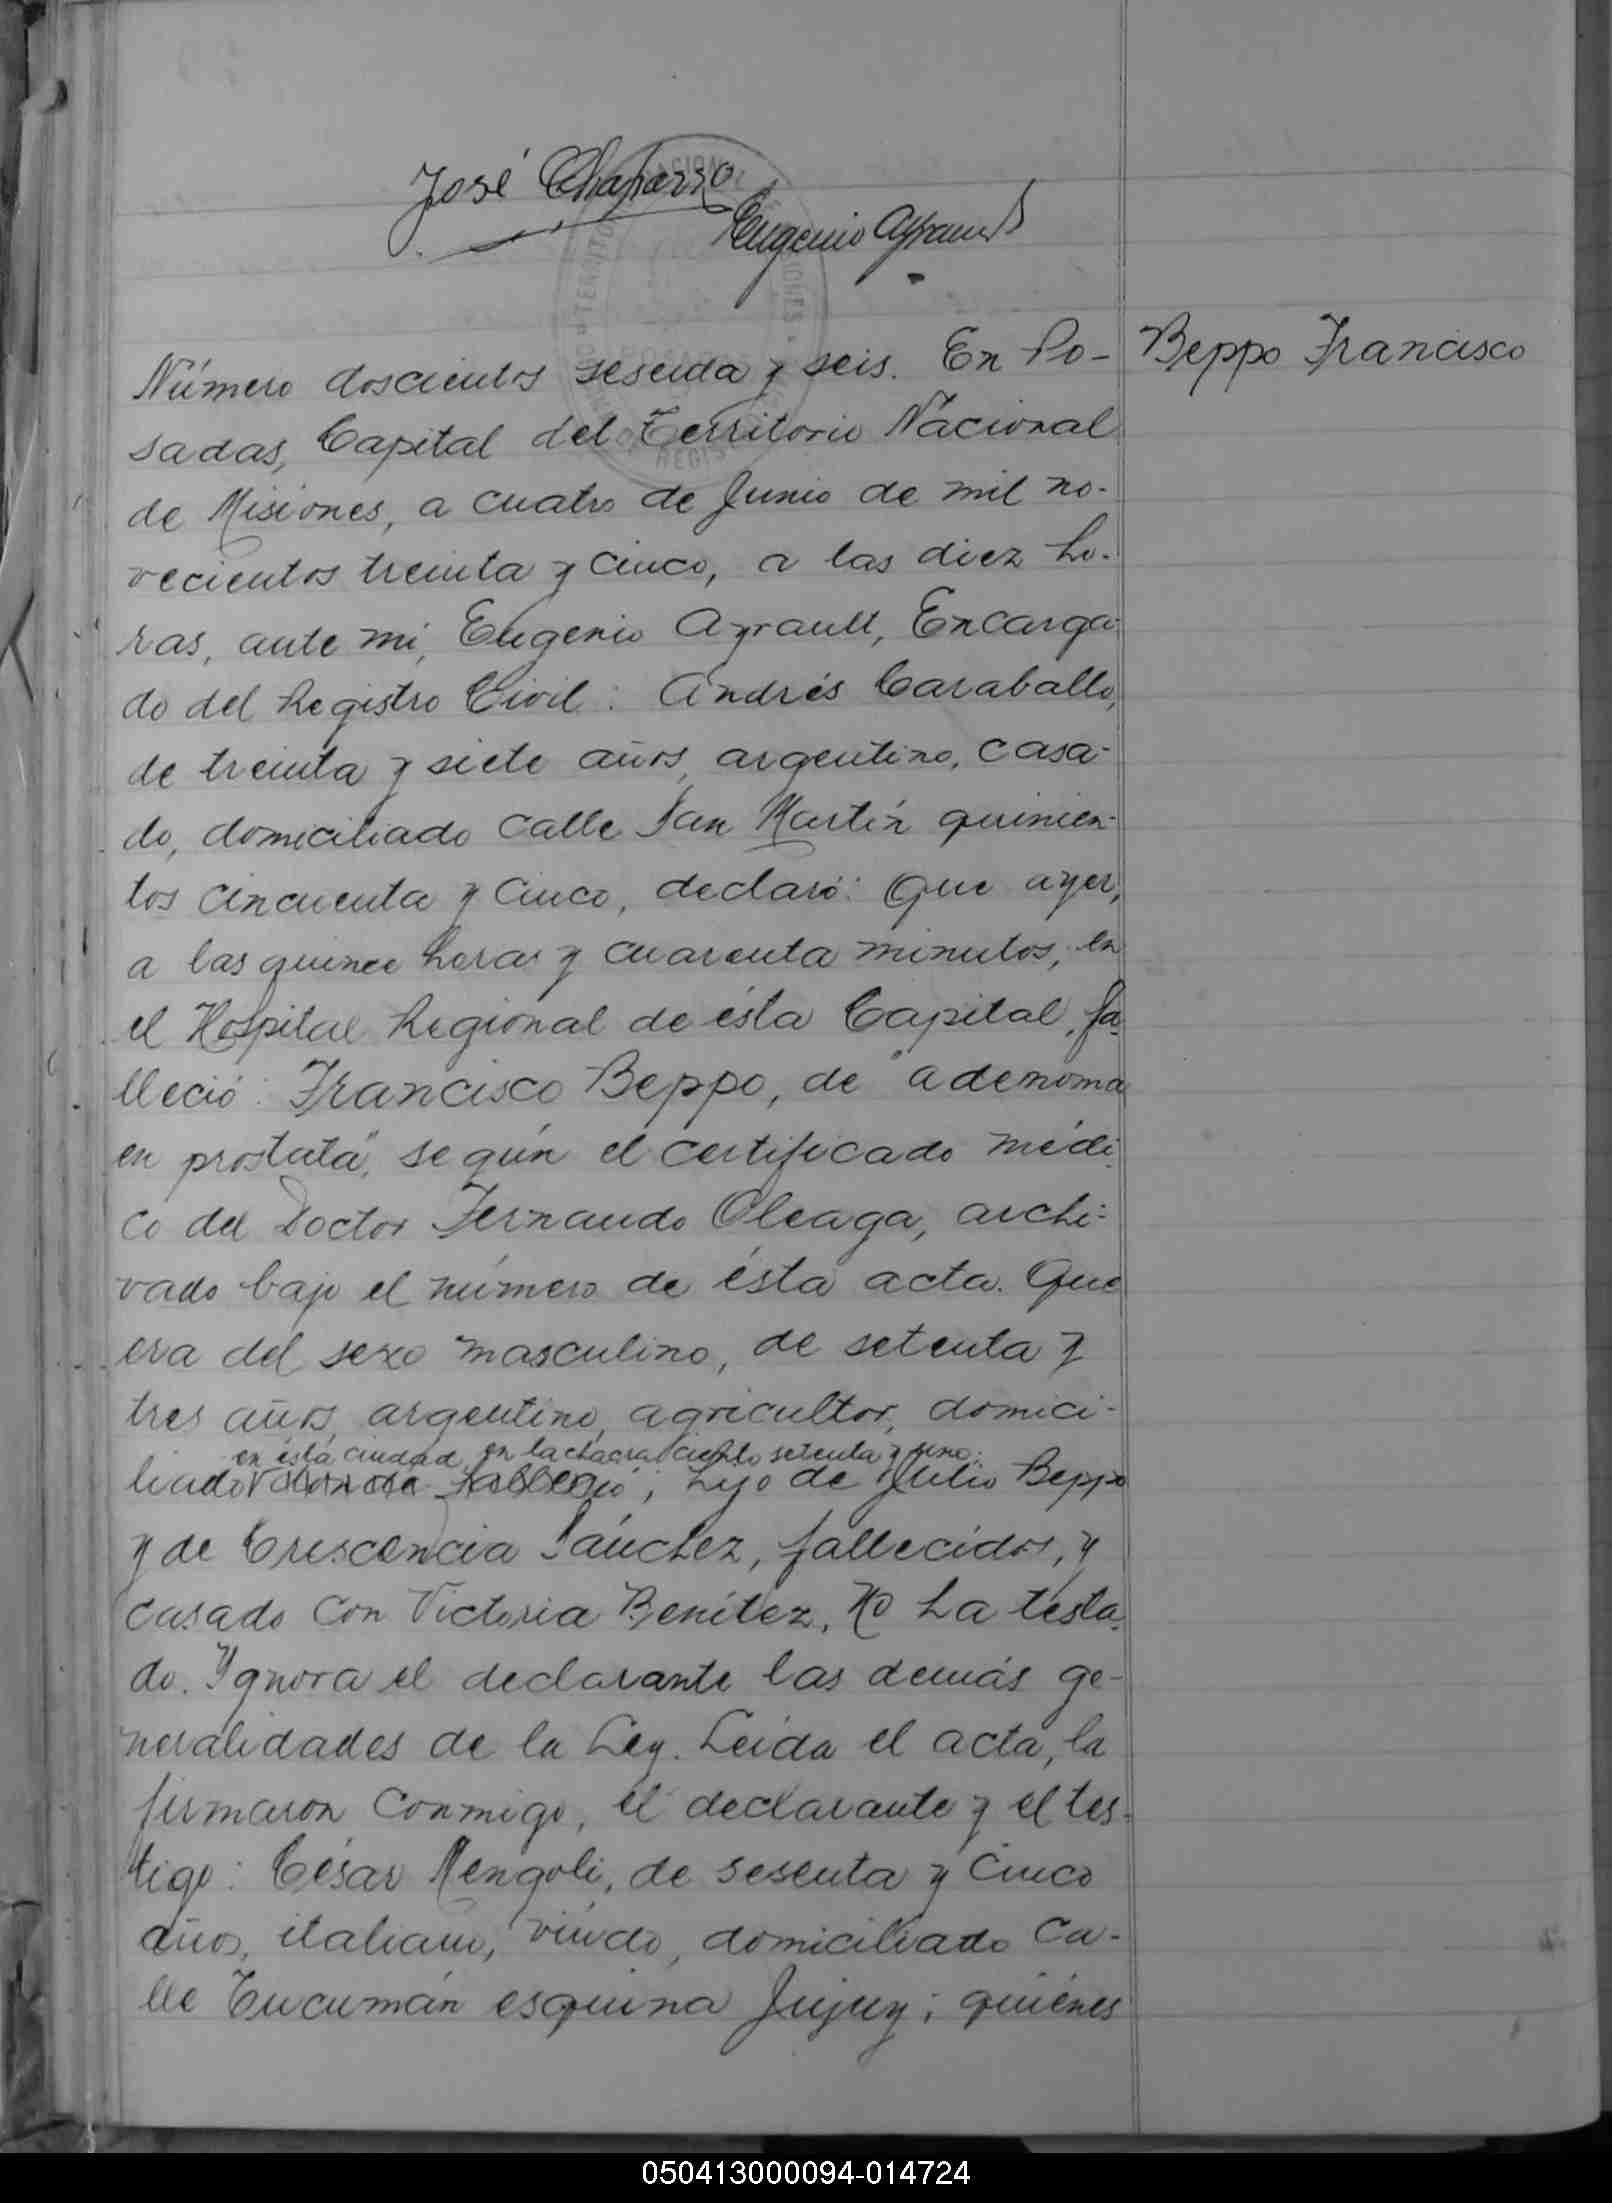 José Chaparro
Eugenio Ayrault
Beppo Francisco
Número doscientos sesenta y seis. En Po-
sadas, Capital del Territorio Nacional
de Misiones, a cuatro de Junio de mil no-
vecientos treinta y cinco, a las diez ho-
ras, ante mi, Eugenio Ayrault, Encarga-
do del Registro Civil: Andrés Caraballo,
de treinta y siete años, argentino, casa-
do, domiciliado calle San Martín quinien-
tos cincuenta y cinco, declaró: Que ayer,
a las quince horas y cuarenta minutos, en
el Hospital Regional de ésta Capital, fa-
lleció: Francisco Beppo, de "adenoma
en prostata", según el certificado médi-
co del Doctor Fernando Oleaga, archi-
vado bajo el número de ésta acta. Que
era del sexo masculino, de setenta y
tres años, argentino, agricultor, domici-
en ésta ciudad, en la chacra ciento setenta y uno;
liado donde falleció; hijo de Julio Beppo
y de Crescencia Sánchez, fallecidos, y
casado con Victoria Benítez. No ha testa-
do. Ignora el declarante las demás ge-
neralidades de la Ley. Leída el acta, la
firmaron conmigo, el declarante y el tes-
tigo: César Mengoli, de sesenta y cinco
años, italiano, viudo, domiciliado ca-
lle Tucumán esquina Jujuy; quiénes
050413000094-014724